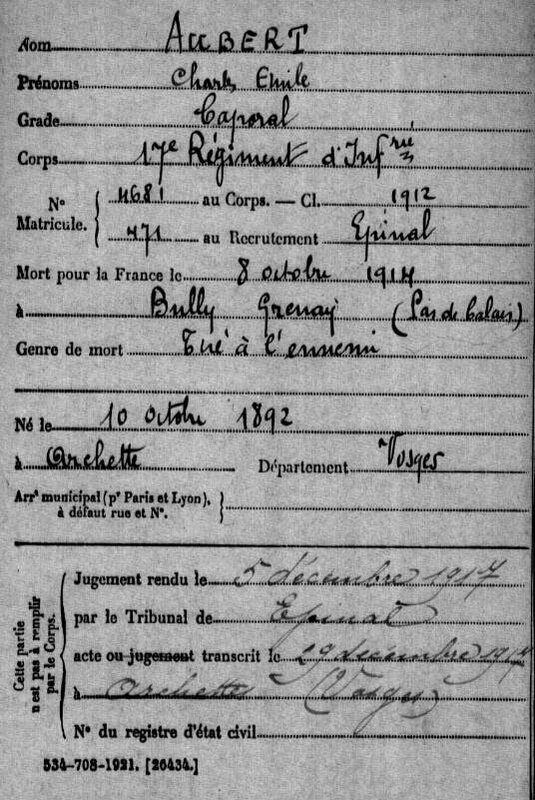 Nom AUBERT
Prénoms Charles Emile
Grade Caporal
Corps 17e Régiment d'Infrie
N° Matricule. 4681 au Corps. — Cl. 1912
471 au Recrutement Epinal
Mort pour la France le 8 octobre 1914
à Bully Grenay (Pas de Calais)
Genre de mort Tué à l'ennemi
Né le 10 octobre 1892
à Archette Département Vosges
Arrt municipal (pr Paris et Lyon), à défaut rue et N°.
Cette partie n'est pas à remplir par le Corps.
Jugement rendu le 5 décembre 1917
par le Tribunal de Epinal
acte ou jugement transcrit le 29 décembre 1917
à Archette (Vosges)
N° du registre d'état civil
534-708-1921. [26434.]